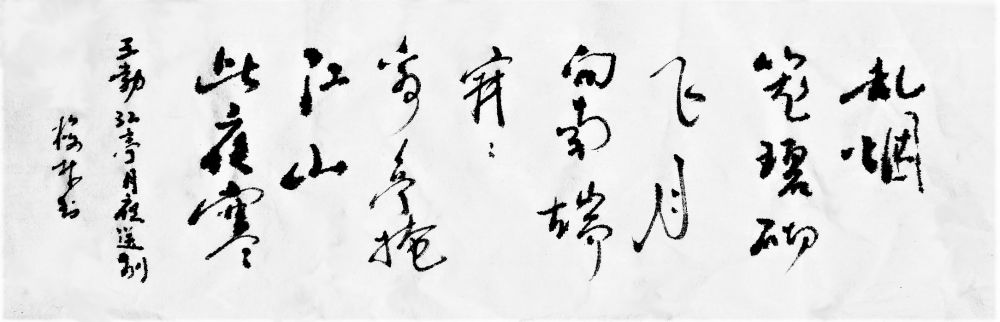 乱烟
笼碧砌
飞月
向南端
寂〻
离亭掩
江山
此夜寒
王勃江亭月夜送别
书